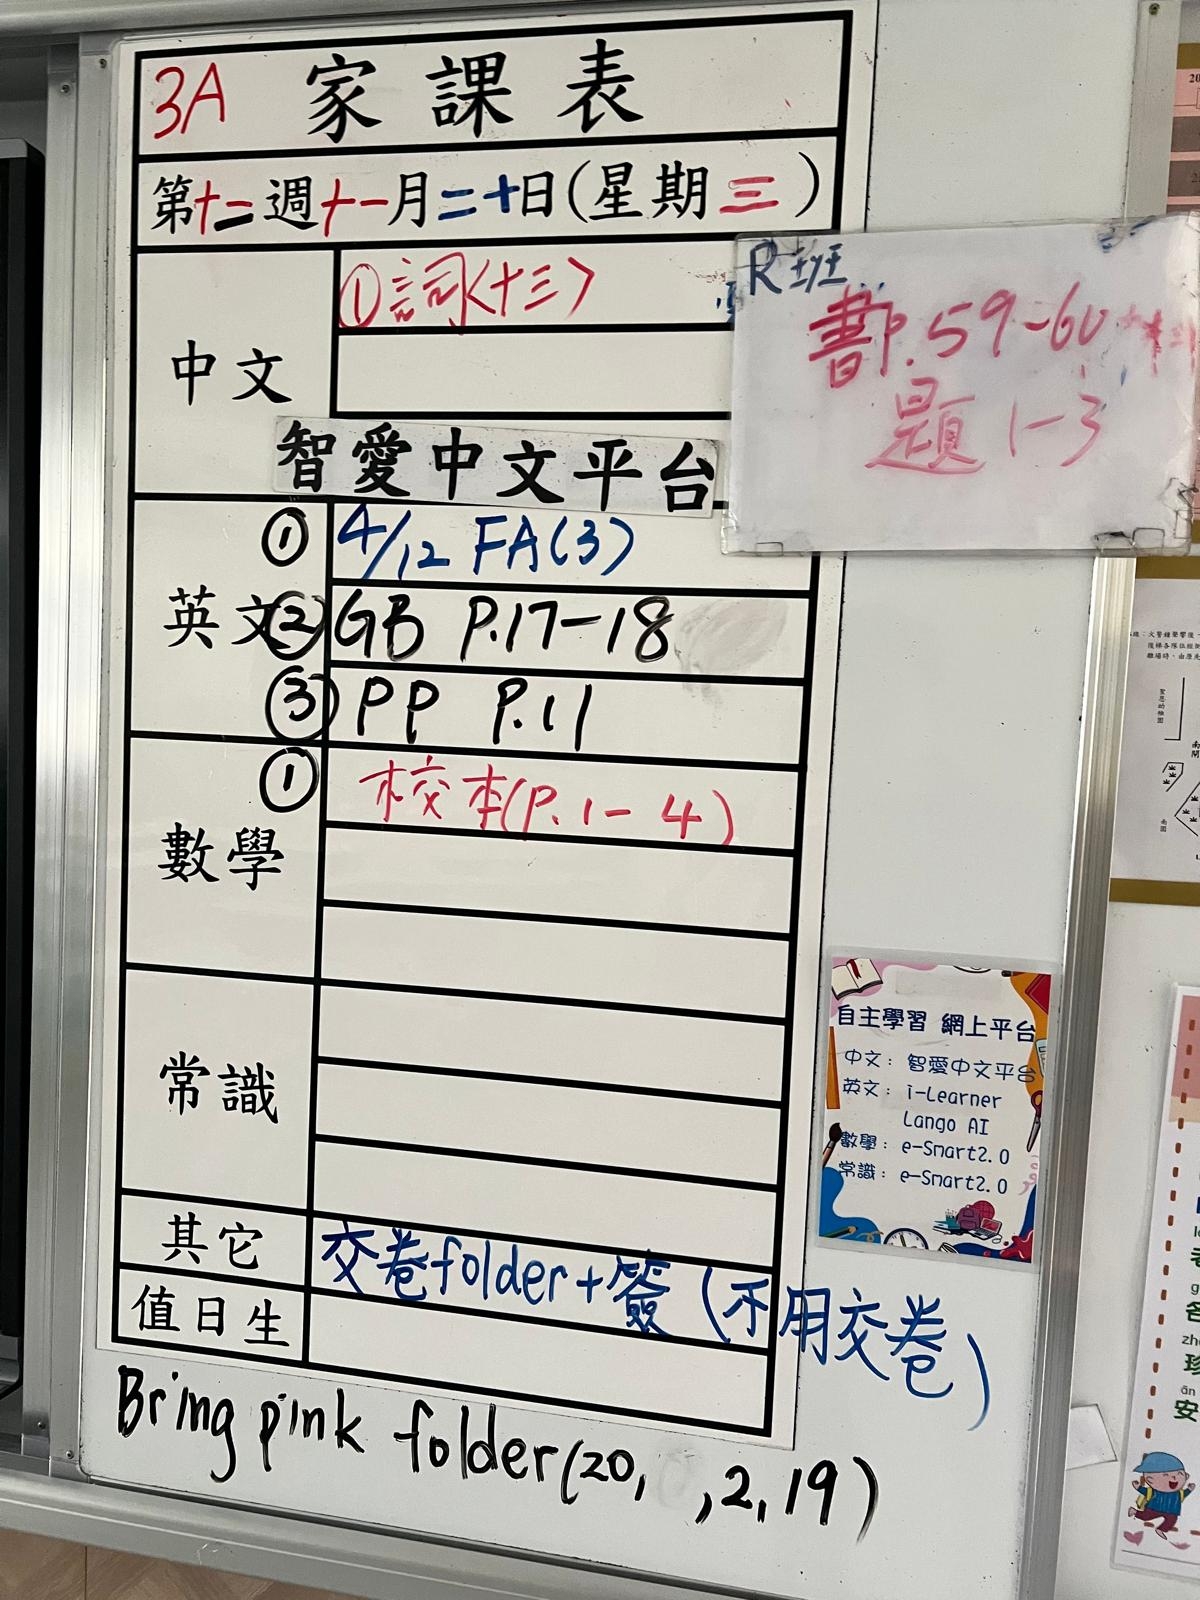 3A 家課表
第十二週十一月二十日(星期三)
中文
①詞<十三>
智愛中文平台
R班
書P.59-60
題1-3
英文
① 4/12 FA(3)
② GB P.17-18
③ PP P.11
數學
① 校本(P.1-4)
常識
其它
交卷folder+簽(不用交卷)
值日生
Bring pink folder(20, ,2,19)
自主學習 網上平台
中文：智愛中文平台
英文：i-Learner
Lango AI
數學：e-Smart2.0
常識：e-Smart2.0
安